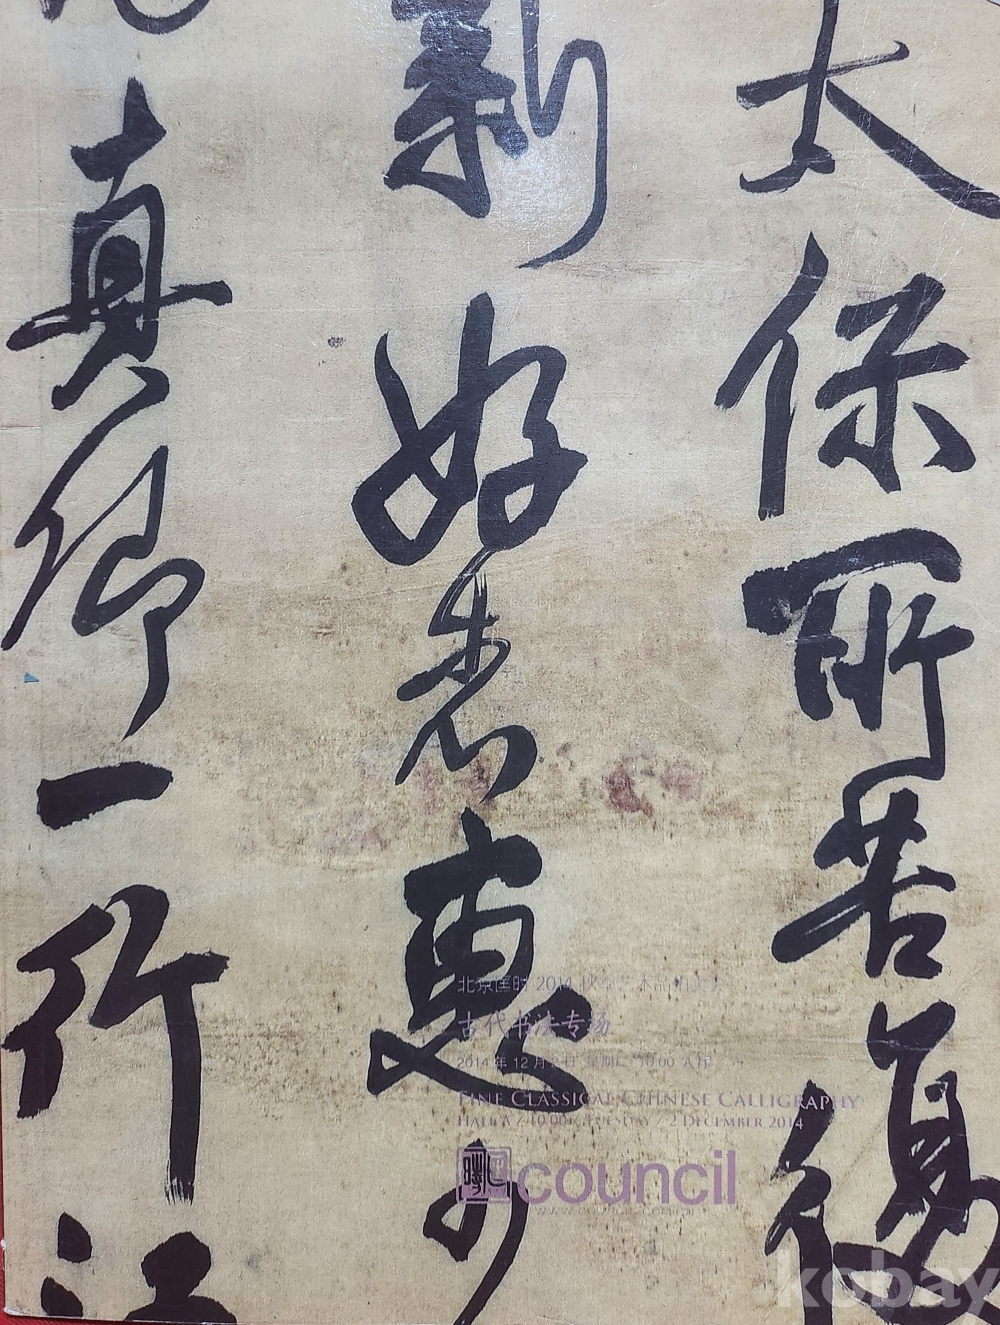 太保所苦
新好者惠
真卿一行江
北京匡时 2014 秋季艺术品拍卖会
古代书法专场
2014 年 12 月 2 日 星期二 10:00 A厅
FINE CLASSICAL CHINESE CALLIGRAPHY
HALL A / 10:00 / TUESDAY / 2 DECEMBER 2014
council
kobay